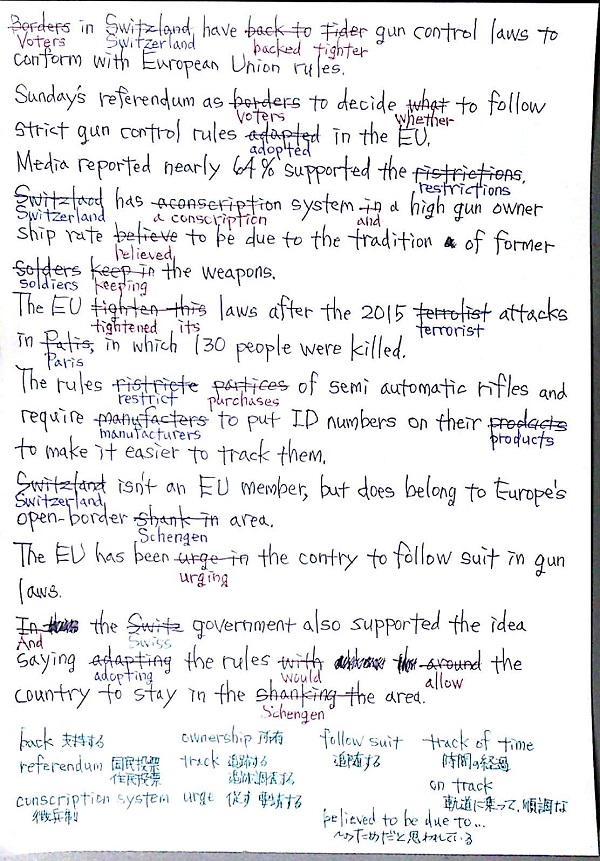 Borders in Switzland, have back to tider gun control laws to
Voters Switzerland backed tighter
conform with European Union rules.
Sunday's referendum as borders to decide what to follow
Voters whether
strict gun control rules adapted in the EU.
adopted
Media reported nearly 64% supported the ristrictions.
restrictions
Switzlaod has aconscription system in a high gun owner
Switzerland a conscription and
ship rate believe to be due to the tradition of former
believed
solders keep in the weapons.
soldiers keeping
The EU tighten this laws after the 2015 terrolist attacks
tightened its terrorist
in Palis, in which 130 people were killed.
Paris
The rules ristricte partices of semi automatic rifles and
restrict purchases
require manufacters to put ID numbers on their prodacts
manufacturers products
to make it easier to track them.
Switzland isn't an EU member, but does belong to Europe's
Switzerland
open-border shank in area.
Schengen
The EU has been urge in the contry to follow suit in gun
urging
laws.
In the Switz government also supported the idea
And Swiss
saying adapting the rules with around the
adopting would allow
country to stay in the shanking the area.
Schengen
back 支持する ownership 所有 follow suit track of time
referendum 国民投票 track 追跡する 追随する 時間の経過
住民投票 追跡調査する on track
conscription system urge 促す 要請する 軌道に乗って、順調な
徴兵制 believed to be due to...
〜のためだと思われている